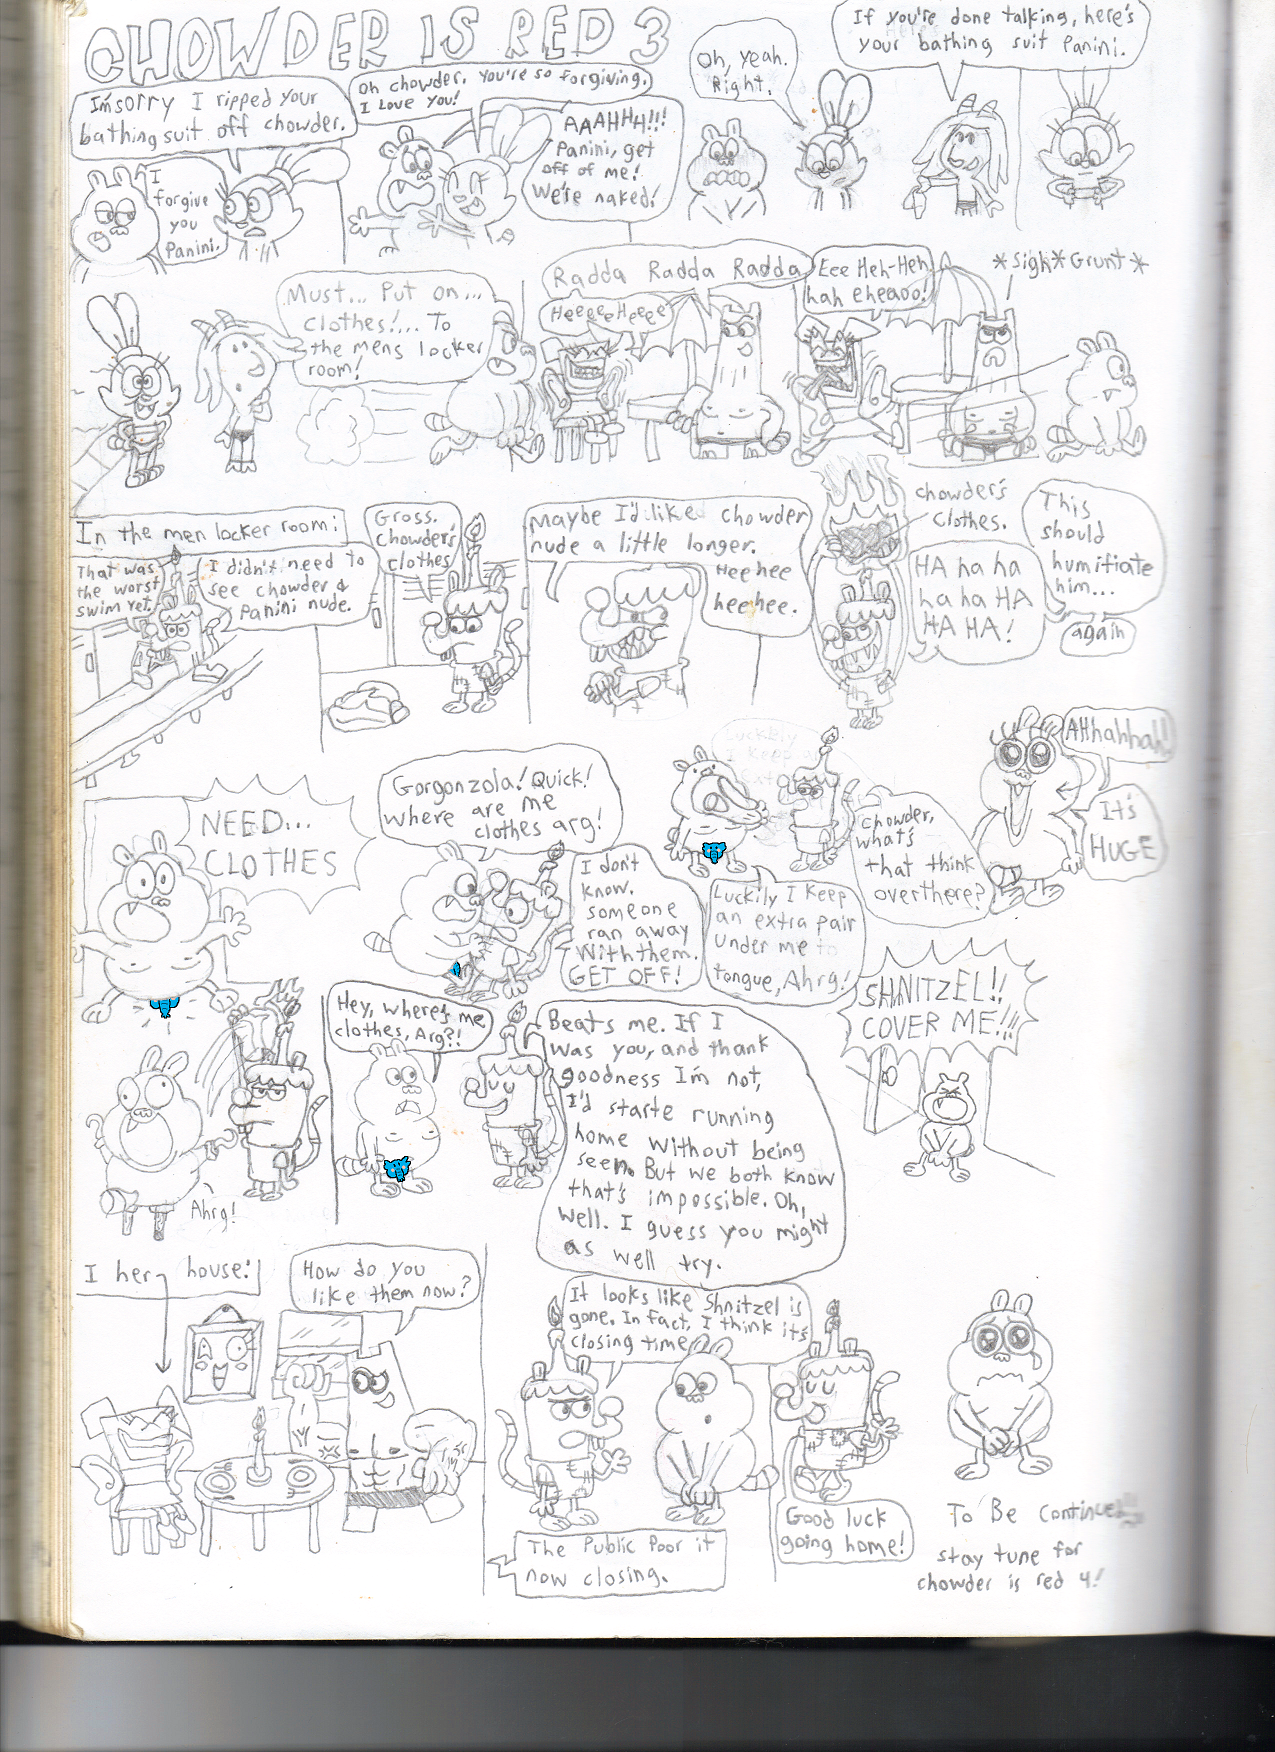 CHOWDER IS RED 3
I'm sorry I ripped your
bathing suit off chowder.
I
forgive
you
Panini.
Oh chowder, you're so forgiving.
I Love you!
AAAHHH!!!
Panini, get
off of me!
We're naked!
Oh, yeah.
Right.
If you're done talking, here's
your bathing suit Panini.
Must... Put on...
clothes!... To
the mens locker
room!
Heeeee Heeee
Radda Radda Radda
Eee Heh-Heh
hah eheaoo!
*Sigh* Grunt *
In the men locker room:
That was
the worst
swim yet.
I didn't need to
see chowder &
Panini nude.
Gross.
Chowder's
clothes
Maybe I'd liked chowder
nude a little longer.
Hee hee
hee hee.
chowder's
clothes.
HA ha ha
ha ha HA
HA HA!
This
should
humitiate
him...
again
NEED...
CLOTHES
Gorgonzola! Quick!
where are me
clothes arg!
I don't
know.
someone
ran away
With them.
GET OFF!
Luckily I keep
an extra pair
under me to
tongue, Ahrg!
chowder,
what's
that think
over there?
AHhahhah!
It's
HUGE
Ahrg!
Hey, where's me
clothes, Arg?!
Beats me. If I
was you, and thank
goodness I'm not,
I'd starte running
home without being
seen. But we both know
that's impossible. Oh,
well. I guess you might
as well try.
SHNITZEL!!
COVER ME!!!
I her house:
How do you
like them now?
It looks like Shnitzel is
gone. In fact, I think it's
closing time
The Public Poor it
now closing.
Good luck
going home!
To Be Continue
stay tune for
chowder is red 4!